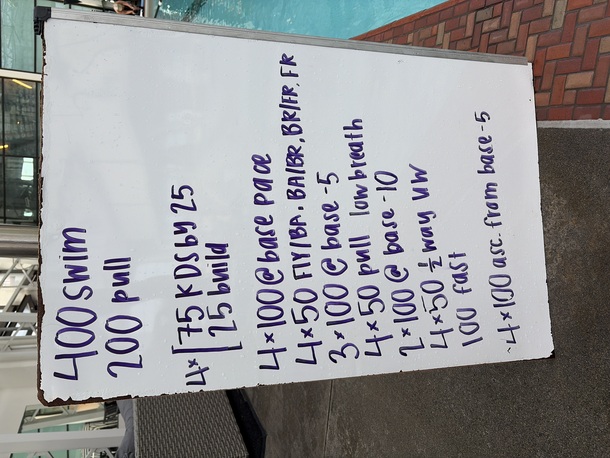 400 swim
200 pull
4x [75 KDS by 25
25 build
4x100 @ base pace
4x50 FLY/BA, BA/BR, BR/FR, FR
3x100 @ base -5
4x50 pull low breath
2x100 @ base -10
4x50 ½ way UW
100 fast
4x100 asc. from base -5